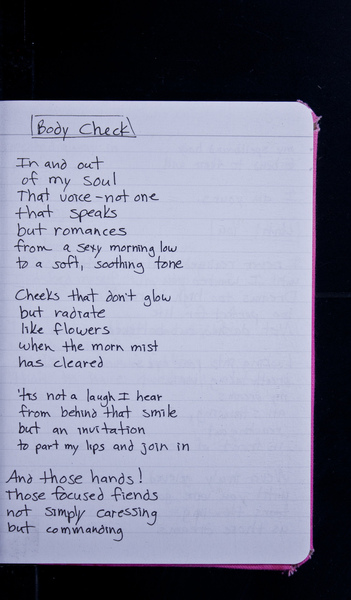 Body Check
In and out
of my soul
That voice - not one
that speaks
but romances
from a sexy morning low
to a soft, soothing tone
Cheeks that don't glow
but radiate
like flowers
when the morn mist
has cleared
'tis not a laugh I hear
from behind that smile
but an invitation
to part my lips and join in
And those hands!
Those focused fiends
not simply caressing
but commanding